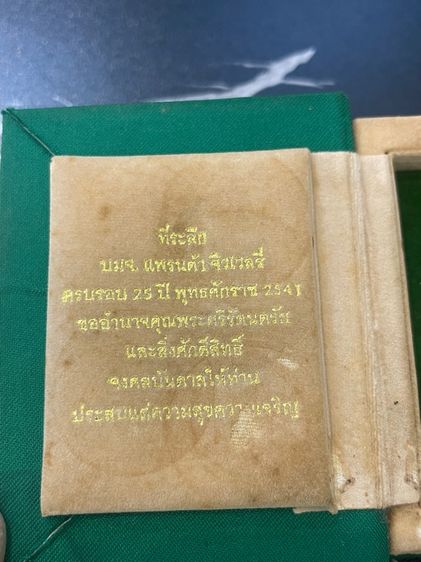 ที่ระลึก
บมจ. แพรนด้า จิวเวลรี่
ครบรอบ 25 ปี พุทธศักราช 2541
ขออำนาจคุณพระศรีรัตนตรัย
และสิ่งศักดิ์สิทธิ์
จงดลบันดาลให้ท่าน
ประสบแต่ความสุขความเจริญ